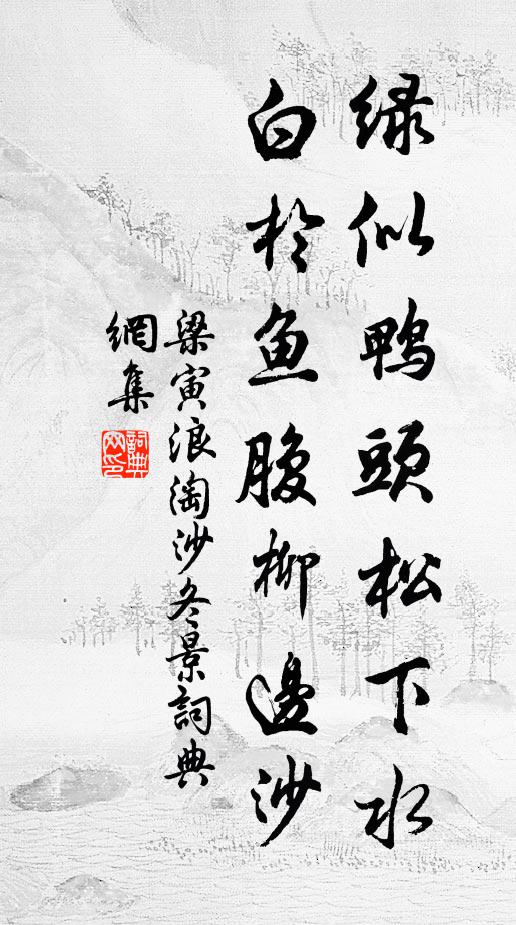 绿似鸭頭松下水
白於鱼腹柳邊沙
梁寅浪淘沙冬景詞典
網集
詞典
网印